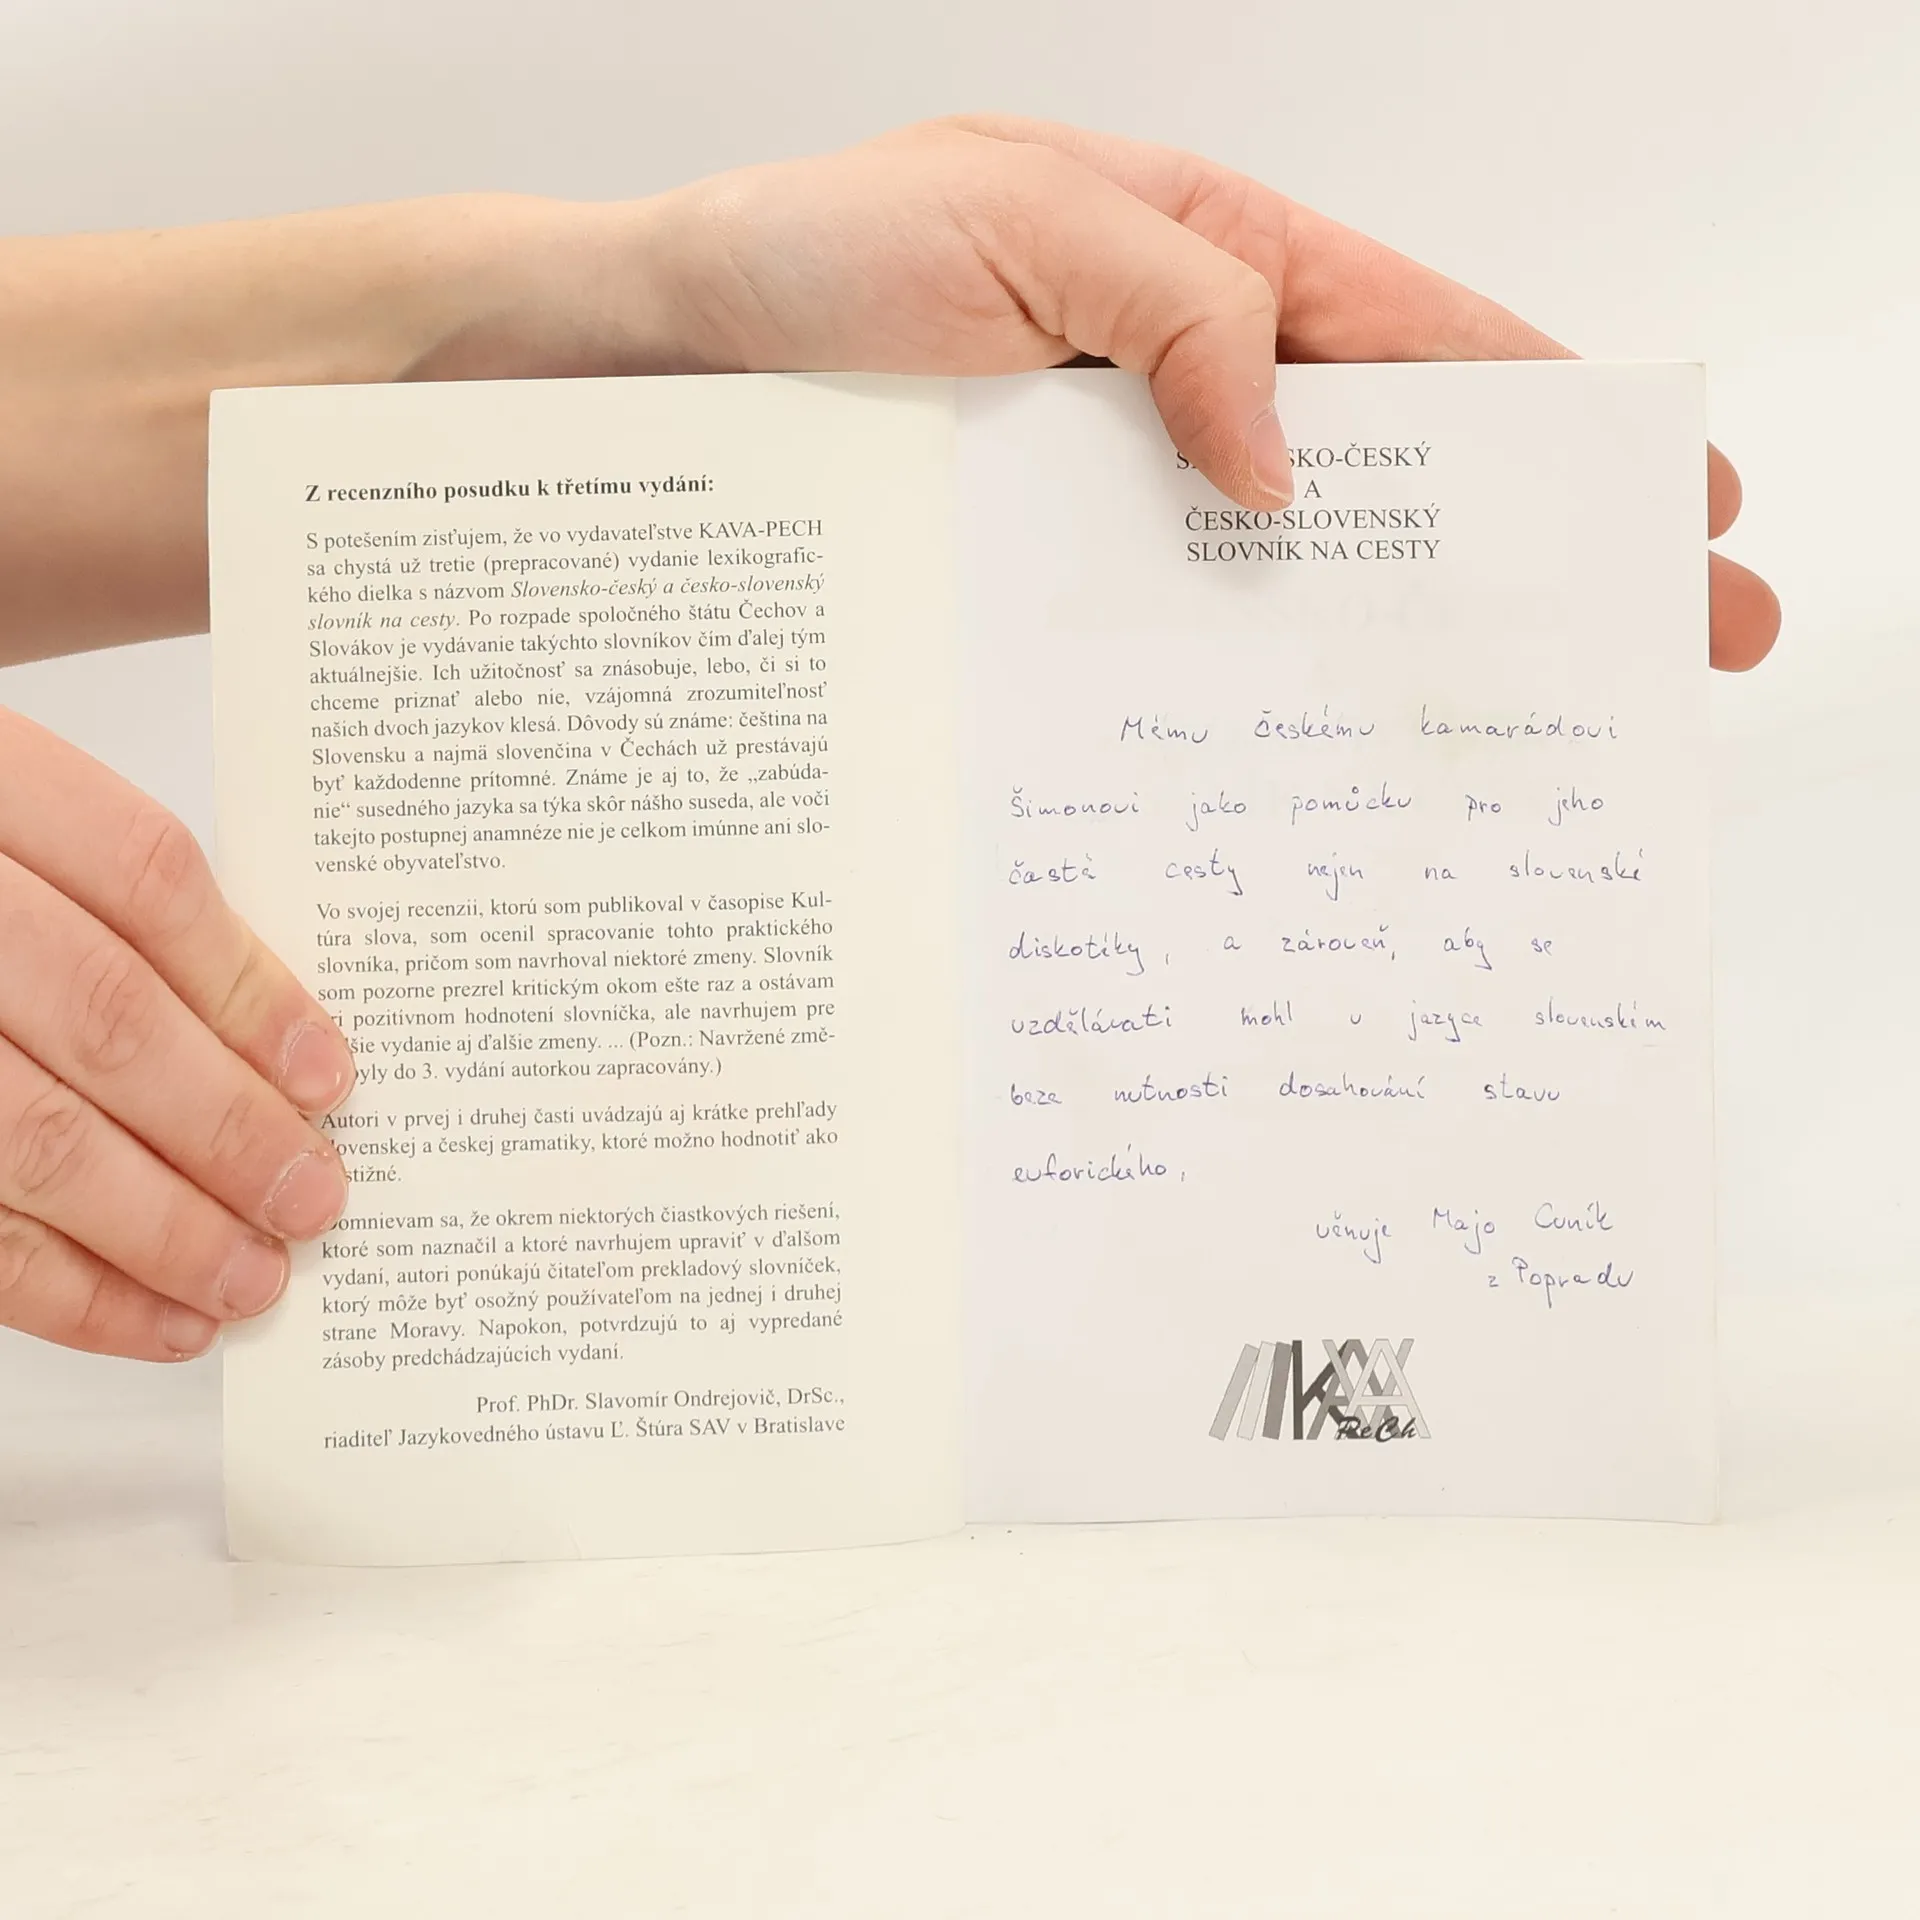 Z recenzního posudku k třetímu vydání:
S potešením zisťujem, že vo vydavateľstve KAVA-PECH
sa chystá už tretie (prepracované) vydanie lexikografic-
kého dielka s názvom Slovensko-český a česko-slovenský
slovník na cesty. Po rozpade spoločného štátu Čechov a
Slovákov je vydávanie takýchto slovníkov čím ďalej tým
aktuálnejšie. Ich užitočnosť sa znásobuje, lebo, či si to
chceme priznať alebo nie, vzájomná zrozumiteľnosť
našich dvoch jazykov klesá. Dôvody sú známe: čeština na
Slovensku a najmä slovenčina v Čechách už prestávajú
byť každodenne prítomné. Známe je aj to, že „zabúda-
nie“ susedného jazyka sa týka skôr nášho suseda, ale voči
takejto postupnej anamnéze nie je celkom imúnne ani slo-
venské obyvateľstvo.
Vo svojej recenzii, ktorú som publikoval v časopise Kul-
túra slova, som ocenil spracovanie tohto praktického
slovníka, pričom som navrhoval niektoré zmeny. Slovník
som pozorne prezrel kritickým okom ešte raz a ostávam
ri pozitívnom hodnotení slovníčka, ale navrhujem pre
šie vydanie aj ďalšie zmeny. ... (Pozn.: Navržené změ-
byly do 3. vydání autorkou zapracovány.)
Autori v prvej i druhej časti uvádzajú aj krátke prehľady
lovenskej a českej gramatiky, ktoré možno hodnotiť ako
stižné.
omnievam sa, že okrem niektorých čiastkových riešení,
ktoré som naznačil a ktoré navrhujem upraviť v ďalšom
vydaní, autori ponúkajú čitateľom prekladový slovníček,
ktorý môže byť osožný používateľom na jednej i druhej
strane Moravy. Napokon, potvrdzujú to aj vypredané
zásoby predchádzajúcich vydaní.
Prof. PhDr. Slavomír Ondrejovič, DrSc.,
riaditeľ Jazykovedného ústavu Ľ. Štúra SAV v Bratislave
SKO-ČESKÝ
A
ČESKO-SLOVENSKÝ
SLOVNÍK NA CESTY
Mému českému kamarádovi
Šimonovi jako pomůcku pro jeho
časté cesty nejen na slovenské
diskotéky, a zároveň, aby se
vzdělávati mohl v jazyce slovenském
beze nutnosti dosahování stavu
euforického,
věnuje Majo Cuník
z Popradu
KAVA
PeCh